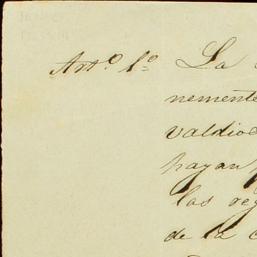 Arto. 1o. La
nemente
valdio
hayan
las reg
de la c